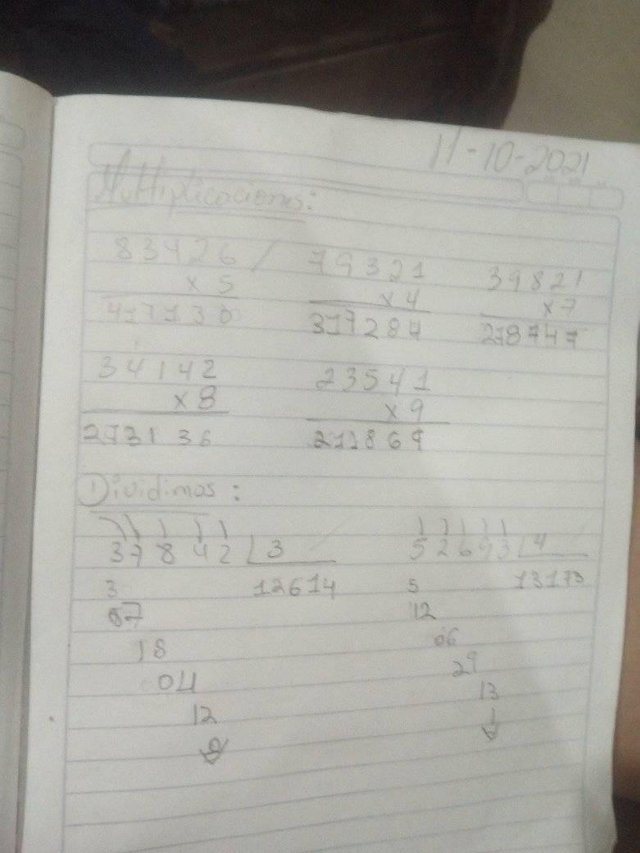 11-10-2021
Multiplicaciones:
83426 79321 39821
x5 x4 x7
417130 317284 278747
34142 23541
x8 x9
273136 211869
Dividimos:
37842 3 52693 4
3 12614 5 13173
07 12
18 06
04 29
12 13
0 1